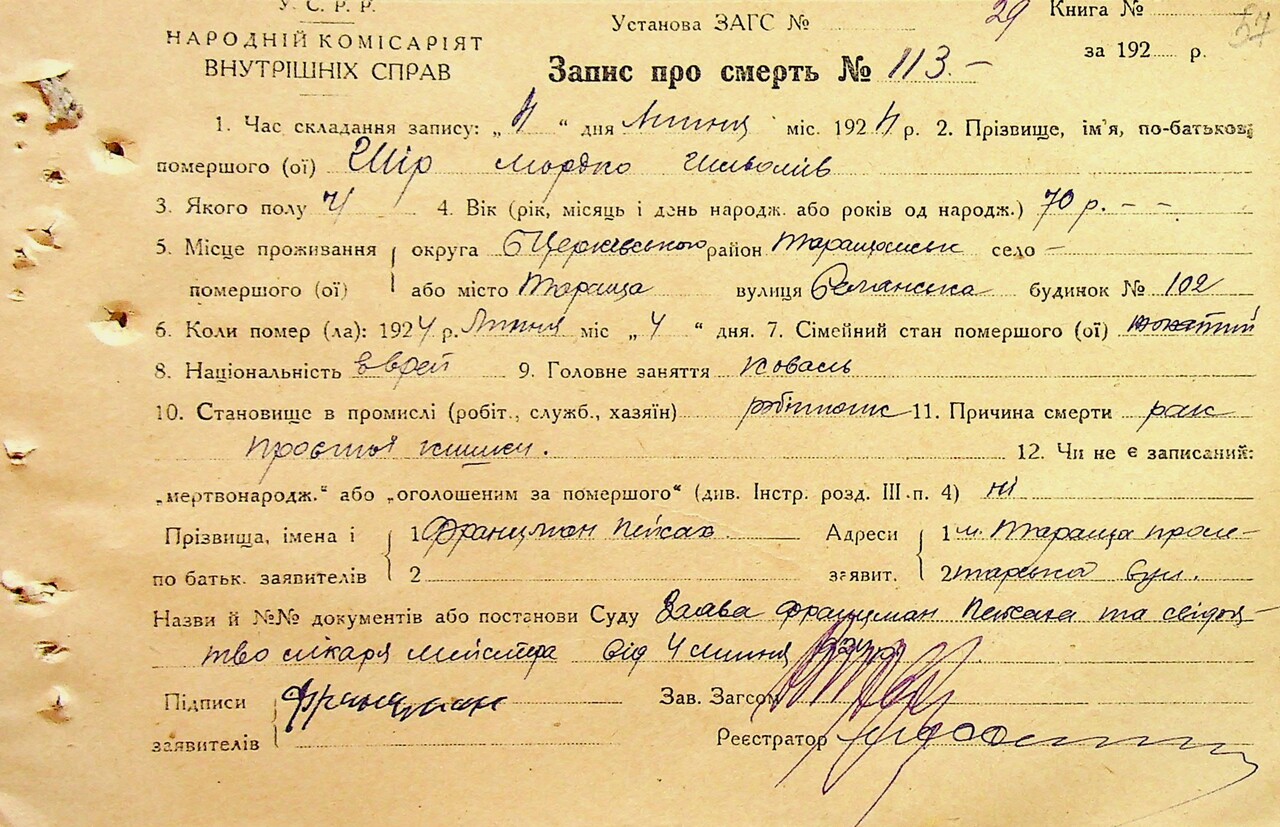 У. С. Р. Р.
НАРОДНІЙ КОМІСАРІЯТ
ВНУТРІШНІХ СПРАВ
Установа ЗАГС №
29 Книга №
57
за 192 р.
Запис про смерть № 113.–
1. Час складання запису: „4“ дня липня міс. 1924 р. 2. Прізвище, ім'я, по-батькові
помершого (ої) Шір Мордко
3. Якого полу ч 4. Вік (рік, місяць і день народж. або років од народж.) 70 р. – –
5. Місце проживання округа БЦерківського район Таращанськ село –
помершого (ої) або місто Тараща вулиця будинок № 102
6. Коли помер (ла): 1924 р. Липня міс „4“ дня. 7. Сімейний стан помершого (ої)
8. Національність єврей 9. Головне заняття коваль
10. Становище в промислі (робіт., служб., хазяїн) робітник 11. Причина смерти рак
простої кишки.
12. Чи не є записаний:
„мертвонародж.“ або „оголошеним за помершого“ (див. Інстр. розд. III п. 4) ні
Прізвища, імена і 1 Францман Пейсах Адреси 1 м. Тараща проле-
по батьк. заявителів 2 заявит. 2 тарська вул.
Назви й №№ документів або постанови Суду Заява Францман Пейсаха та свідоц-
тво лікаря Мейстера від 4 липня
Підписи Францман Зав. Загсом
заявителів Реєстратор